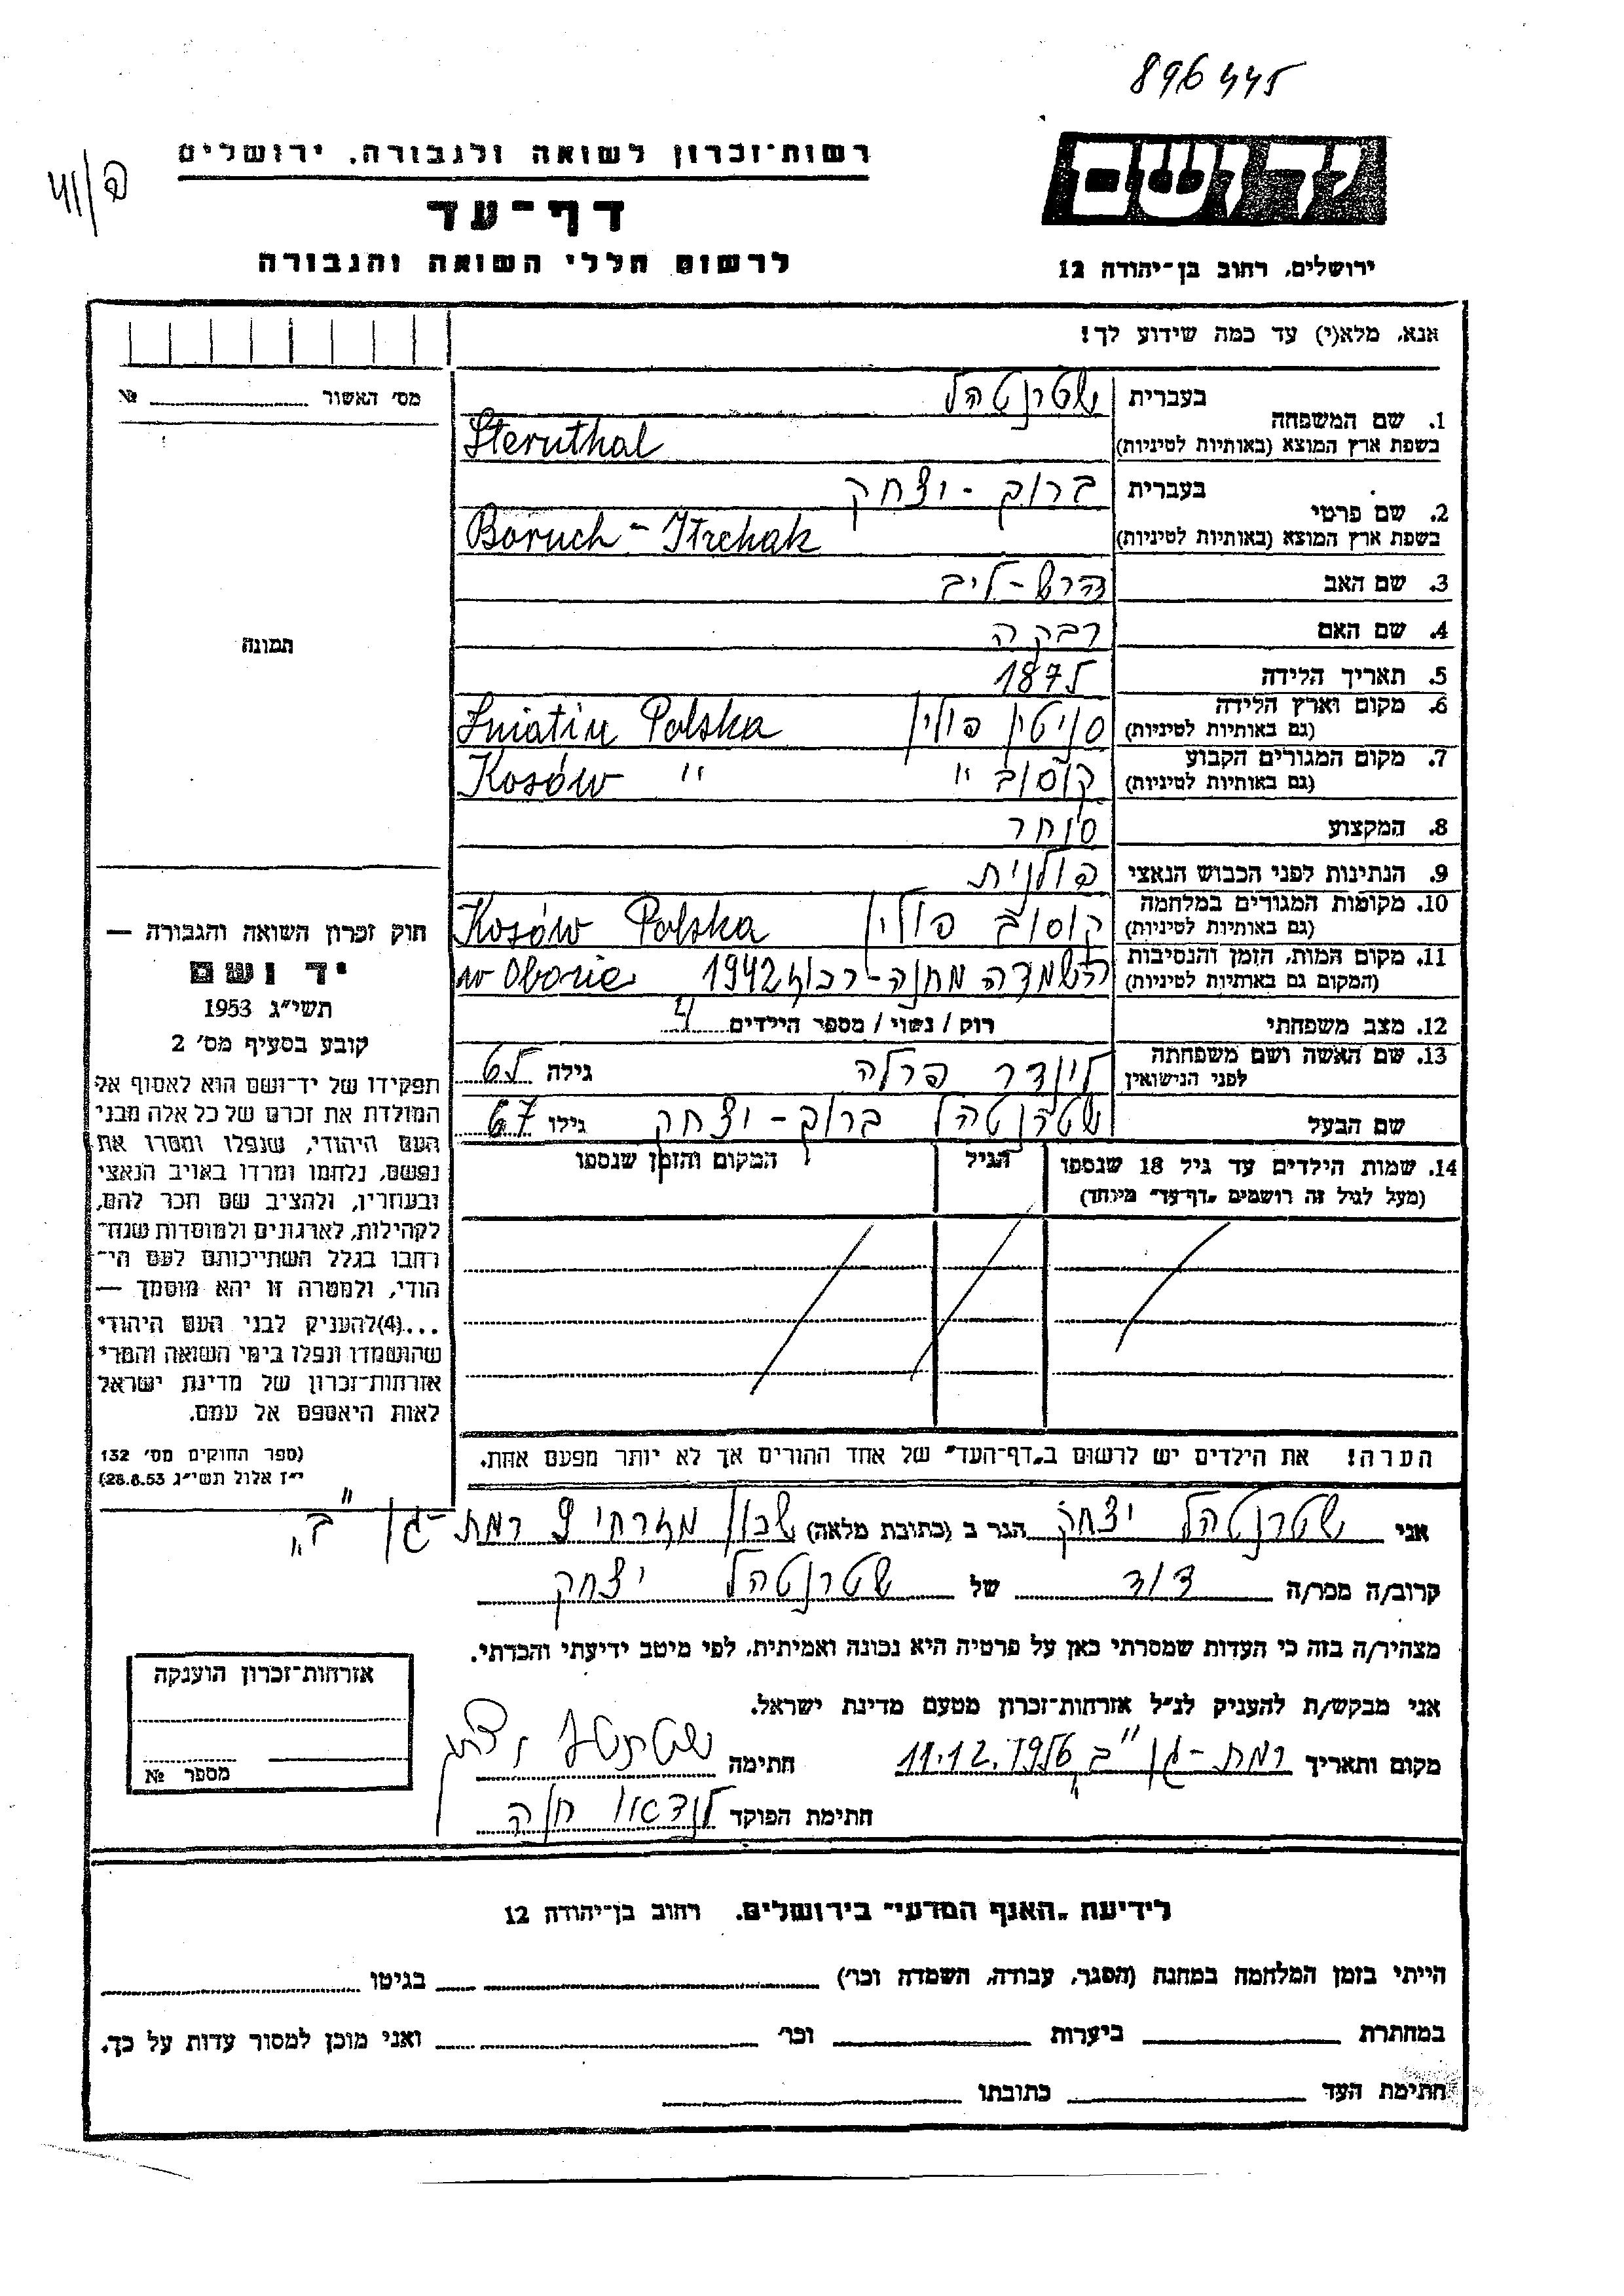 896445
ש/41
רשות־זכרון לשואה ולגבורה, ירושלים
דף־עד
לרשום חללי השואה והגבורה
יד ושם
ירושלים, רחוב בן־יהודה 12
אנא, מלא(י) עד כמה שידוע לך!
מס׳ האשור № 
תמונה
1. שם המשפחה בעברית שטרנטהל
בשפת ארץ המוצא (באותיות לטיניות) Sternthal
2. שם פרטי בעברית ברוך - יצחק
בשפת ארץ המוצא (באותיות לטיניות) Boruch - Itzchak
3. שם האב הרש - ליב
4. שם האם רבקה
5. תאריך הלידה 1875
6. מקום וארץ הלידה (גם באותיות לטיניות) סניטין פולין Sniatin Polska
7. מקום המגורים הקבוע (גם באותיות לטיניות) קוסוב " Kosów "
8. המקצוע סוחר
9. הנתינות לפני הכבוש הנאצי פולנית
10. מקומות המגורים במלחמה (גם באותיות לטיניות) קוסוב פולין Kosów Polska
11. מקום המות, הזמן והנסיבות (המקום גם באותיות לטיניות) השמדה מחנה - רכוז 1942 w Obozie
12. מצב משפחתי רוק / נשוי / מספר הילדים 4
13. שם האשה ושם משפחתה לפני הנישואין לינדר פרלה גילה 65
שם הבעל שטרנטהל ברוך - יצחק גילו 67
14. שמות הילדים עד גיל 18 שנספו (מעל לגיל זה רושמים „דף־עד״ מיוחד) הגיל המקום והזמן שנספו
הערה! את הילדים יש לרשום ב„דף־העד״ של אחד ההורים אך לא יותר מפעם אחת.
חוק זכרון השואה והגבורה —
יד ושם
תשי״ג 1953
קובע בסעיף מס׳ 2
תפקידו של יד־ושם הוא לאסוף אל
המולדת את זכרם של כל אלה מבני
העם היהודי, שנפלו ומסרו את
נפשם, נלחמו ומרדו באויב הנאצי
ובעוזריו, ולהציב שם וזכר להם,
לקהילות, לארגונים ולמוסדות שנח־
רבו בגלל השתייכותם לעם הי־
הודי, ולמטרה זו יהא מוסמך —
...(4)להעניק לבני העם היהודי
שהושמדו ונפלו בימי השואה והמרי
אזרחות־זכרון של מדינת ישראל
לאות היאספם אל עמם.
(ספר החוקים מס׳ 132
י״ז אלול תשי״ג 28.8.53)
אני שטרנטהל יצחק הגר ב (כתובת מלאה) שכון מזרחי 9 רמת - גן "ב"
קרוב/ה מכר/ה דוד של שטרנטהל יצחק
מצהיר/ה בזה כי העדות שמסרתי כאן על פרטיה היא נכונה ואמיתית, לפי מיטב ידיעתי והכרתי.
אני מבקש/ת להעניק לנ״ל אזרחות־זכרון מטעם מדינת ישראל.
מקום ותאריך רמת - גן "ב" 11.12.1956 חתימה
חתימת הפוקד לנדאו חנה
אזרחות־זכרון הוענקה
מספר №
לידיעת „האגף המדעי״ בירושלים, רחוב בן־יהודה 12
הייתי בזמן המלחמה במחנה (הסגר, עבודה, השמדה וכו׳) בגיטו
במחתרת ביערות וכו׳ ואני מוכן למסור עדות על כך.
חתימת העד כתובתו